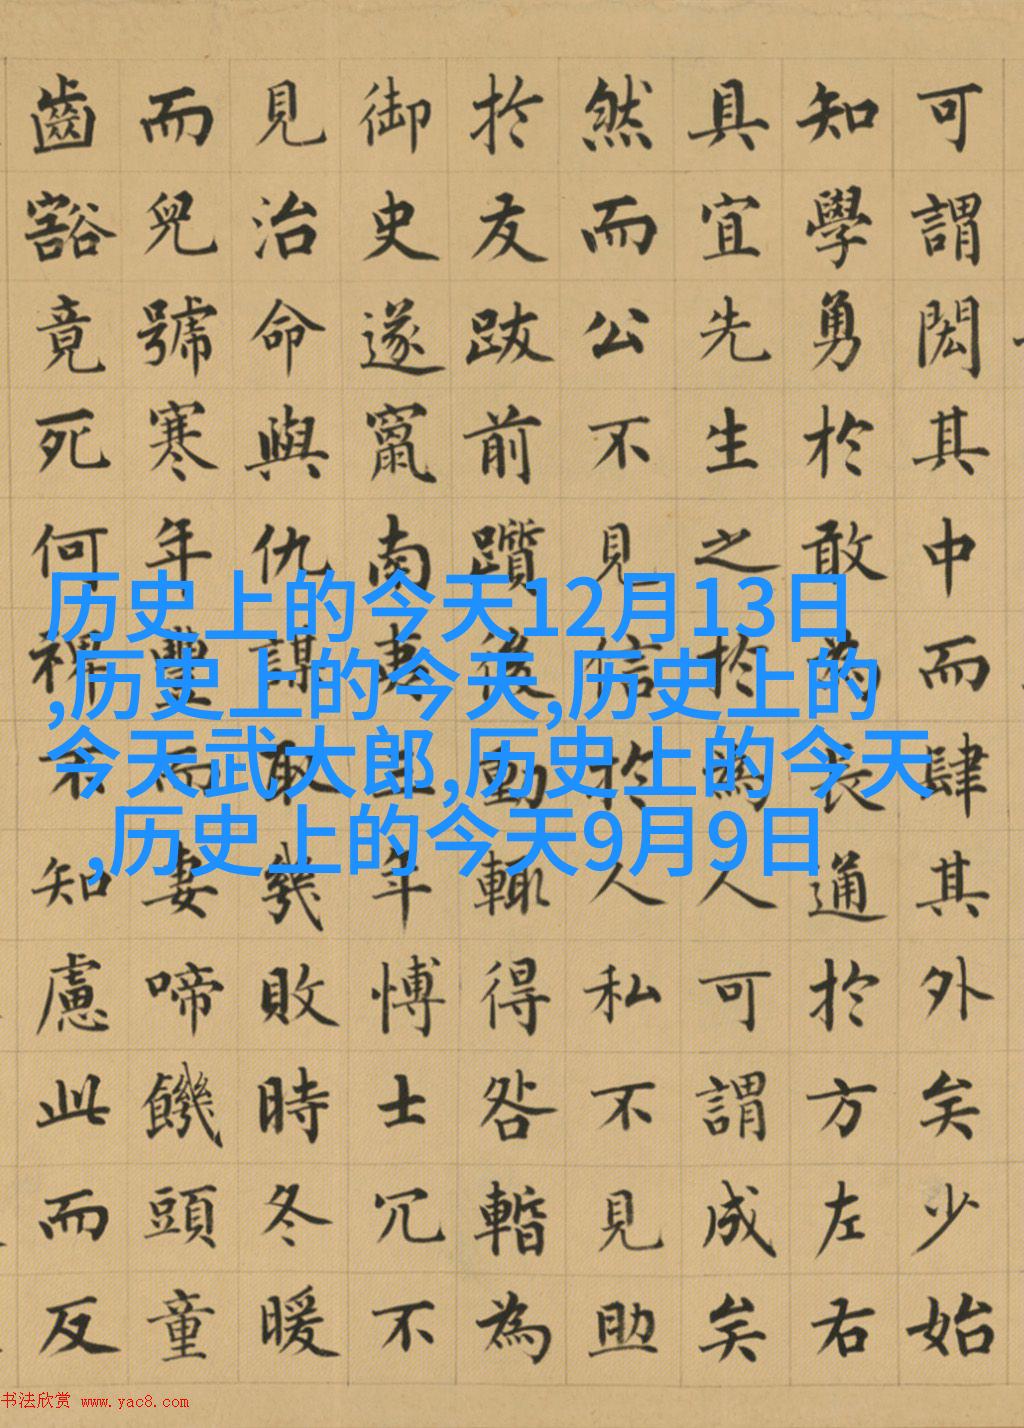 可謂閎其中而肆其外矣少始
知學勇於敢為長通於方左右
具宜先生之於為人可謂成矣
然而公不見信於人私不見助
於友跋前躓後動輒得咎暫為
御史遂竄南夷三年博士冗不
見治命與仇謀取敗幾時冬暖
而兒號寒年豐而妻啼饑頭童
齒豁竟死何裨不知慮此而反
历史上的今天12月13日
,历史上的今天,历史上的
今天武大郎,历史上的今天
,历史上的今天9月9日
书法欣赏 www.yac8.com